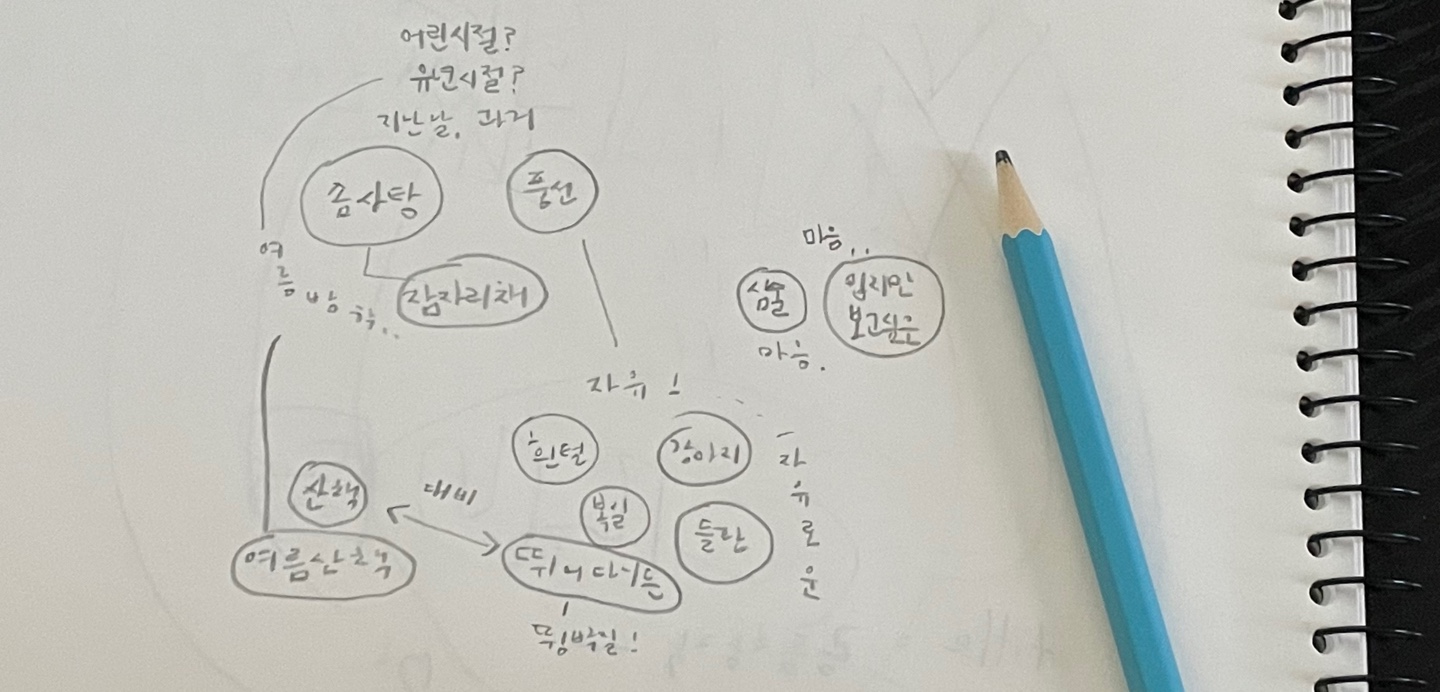 어린시절?
유년시절?
지난날, 과거
솜사탕
풍선
여름방학..
잠자리채
마음..
삼물
입지만
보고싶은
마음.
자유!
흰털
강아지
자유로운
산책
대비
폭일
들판
여름산책
뛰어다니는